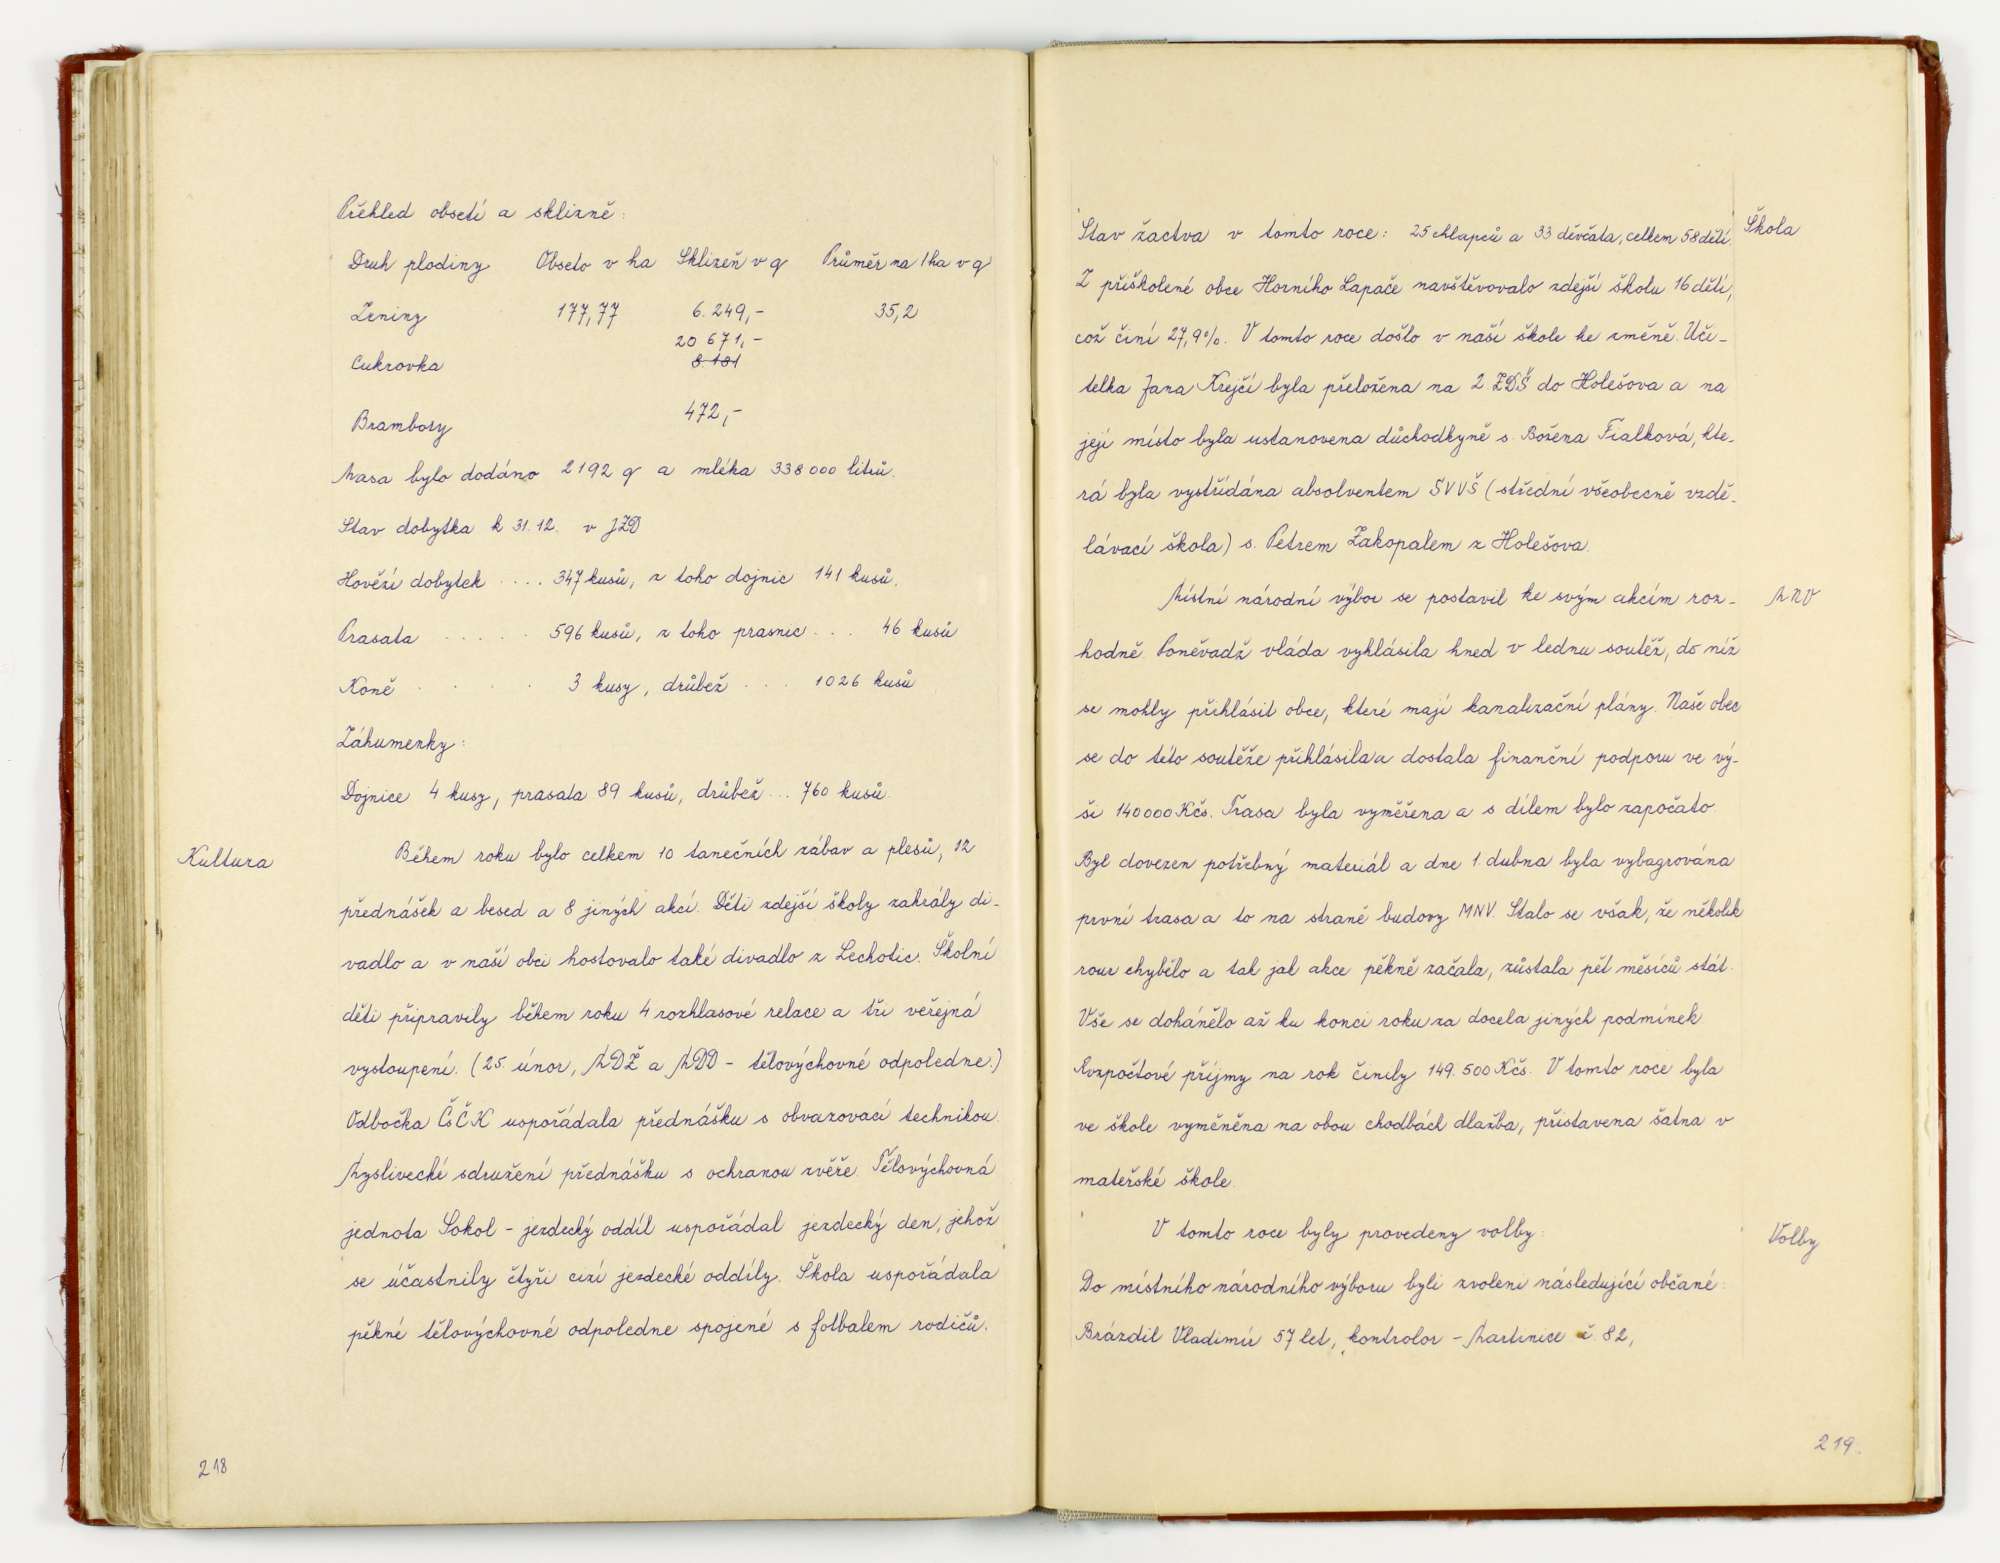 Přehled obsetí a sklizně:
Druh plodiny Obseto v ha Sklizeň v q Průměr na 1 ha v q
Zeniny 177,77 6.249,- 35,2
20 671,-
Cukrovka 8.181
Brambory 472,-
Masa bylo dodáno 2192 q a mléka 338000 litrů.
Stav dobytka k 31.12. v JZD
Hovězí dobytek .... 347 kusů, z toho dojnic 141 kusů.
Prasata ..... 596 kusů, z toho prasnic ... 46 kusů
Koně .... 3 kusy, drůbež ... 1026 kusů
Záhumenky:
Dojnice 4 kusy, prasata 89 kusů, drůbež ... 760 kusů.
Kultura
Během roku bylo celkem 10 tanečních zábav a plesů, 12
přednášek a besed a 8 jiných akcí. Děti zdejší školy zahrály di-
vadlo a v naší obci hostovalo také divadlo z Lechotic. Školní
děti připravily během roku 4 rozhlasové relace a tři veřejná
vystoupení. (25. únor, MDŽ a MDD - tělovýchovné odpoledne.)
Odbočka ČsČK uspořádala přednášku s obvazovací technikou.
Myslivecké sdružení přednášku s ochranou zvěře. Tělovýchovná
jednota Sokol - jezdecký oddíl uspořádal jezdecký den, jehož
se účastnily čtyři cizí jezdecké oddíly. Škola uspořádala
pěkné tělovýchovné odpoledne spojené s fotbalem rodičů.
218
Stav žactva v tomto roce: 25 chlapců a 33 děvčata, celkem 58 dětí. Škola
Z přiškolené obce Horního Lapače navštěvovalo zdejší školu 16 dětí,
což činí 27,9%. V tomto roce došlo v naší škole ke změně. Uči-
telka Jana Krejčí byla přeložena na 2 ZDŠ do Holešova a na
její místo byla ustanovena důchodkyně s. Božena Fialková, kte-
rá byla vystřídána absolventem SVVŠ (střední všeobecně vzdě-
lávací škola) s. Petrem Zakopalem z Holešova.
Místní národní výbor se postavil ke svým akcím roz- MNV
hodně. Poněvadž vláda vyhlásila hned v lednu soutěž, do níž
se mohly přihlásit obce, které mají kanalizační plány. Naše obec
se do této soutěže přihlásila a dostala finanční podporu ve vý-
ši 140000 Kčs. Trasa byla vyměřena a s dílem bylo započato.
Byl dovezen potřebný materiál a dne 1. dubna byla vybagrována
první trasa a to na straně budovy MNV. Stalo se však, že několik
rour chybělo a tak jak akce pěkně začala, zůstala pět měsíců stát.
Vše se dohánělo až ku konci roku za docela jiných podmínek
Rozpočtové příjmy na rok činily 149.500 Kčs. V tomto roce byla
ve škole vyměněna na obou chodbách dlažba, přistavena šatna v
mateřské škole.
V tomto roce byly provedeny volby: Volby
Do místního národního výboru byli zvoleni následující občané:
Brázdil Vladimír 57 let, kontrolor - Martinice č. 82,
219.